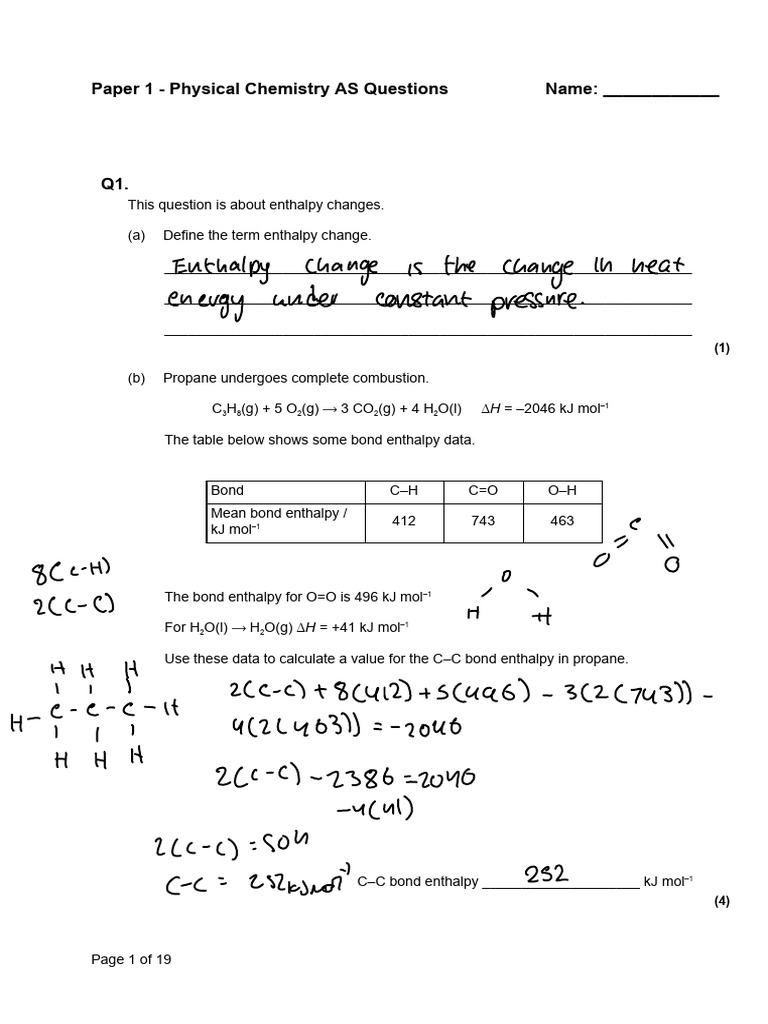 Paper 1 - Physical Chemistry AS Questions Name: ____________
Q1.
This question is about enthalpy changes.
(a) Define the term enthalpy change.
Enthalpy change is the change in heat
energy under constant pressure.
(1)
(b) Propane undergoes complete combustion.
C₃H₈(g) + 5 O₂(g) ⟶ 3 CO₂(g) + 4 H₂O(l) ∆H = –2046 kJ mol⁻¹
The table below shows some bond enthalpy data.
Bond C–H C=O O–H
Mean bond enthalpy / kJ mol⁻¹ 412 743 463
C
O = = O
8(C-H)
2(C-C)
The bond enthalpy for O=O is 496 kJ mol⁻¹
O
H - - H
For H₂O(l) ⟶ H₂O(g) ∆H = +41 kJ mol⁻¹
Use these data to calculate a value for the C–C bond enthalpy in propane.
H H H
H - C - C - C - H
H H H
2(C-C) + 8(412) + 5(496) - 3(2(743)) -
4(2(463)) = -2046
2(C-C) - 2386 = 2046
-4(41)
2(C-C) = 504
C-C = 252 kJmol⁻¹
C–C bond enthalpy 252 kJ mol⁻¹
(4)
Page 1 of 19